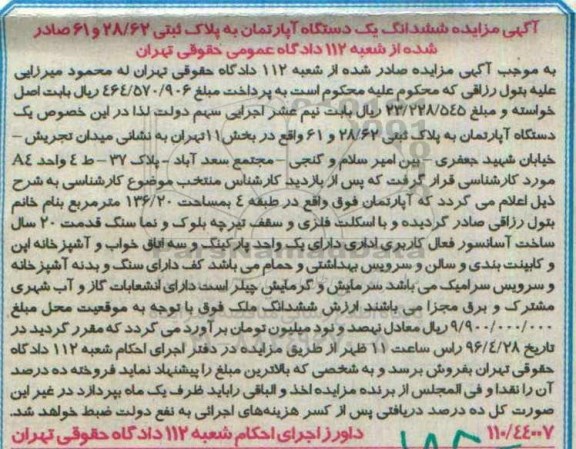 آگهی مزایده ششدانگ یک دستگاه آپارتمان به پلاک ثبتی ۲۸/۶۲ و ۶۱ صادر
شده از شعبه ۱۱۲ دادگاه عمومی حقوقی تهران
به موجب آگهی مزایده صادر شده از شعبه ۱۱۲ دادگاه حقوقی تهران له محمود میرزایی
علیه بتول رزاقی که محکوم علیه محکوم است به پرداخت مبلغ ۴۶۴/۵۷۰/۹۰۶ ریال بابت اصل
خواسته و مبلغ ۲۳/۲۲۸/۵۴۵ ریال بابت نیم عشر اجرایی سهم دولت لذا در این خصوص یک
دستگاه آپارتمان به پلاک ثبتی ۲۸/۶۲ و ۶۱ واقع در بخش ۱۱ تهران به نشانی میدان تجریش –
خیابان شهید جعفری – بین امیر سلام و گنجی – مجتمع سعد آباد – پلاک ۳۷ – ط ۴ واحد A۴
مورد کارشناسی قرار گرفت که پس از بازدید کارشناس منتخب موضوع کارشناسی به شرح
ذیل اعلام می گردد که آپارتمان فوق واقع در طبقه ۴ بمساحت ۱۳۶/۲۰ مترمربع بنام خانم
بتول رزاقی صادر گردیده و با اسکلت فلزی و سقف تیرچه بلوک و نما سنگ قدمت ۲۰ سال
ساخت آسانسور فعال کاربری اداری دارای یک واحد پارکینگ و سه اتاق خواب و آشپزخانه اپن
و کابینت بندی و سالن و سرویس بهداشتی و حمام می باشد کف دارای سنگ و بدنه آشپزخانه
و سرویس سرامیک می باشد سرمایش و گرمایش چیلر است دارای انشعابات گاز و آب شهری
مشترک و برق مجزا می باشند ارزش ششدانگ ملک فوق با توجه به موقعیت محل مبلغ
۹/۹۰۰/۰۰۰/۰۰۰ ریال معادل نهصد و نود میلیون تومان برآورد می گردد که مقرر گردید در
تاریخ ۹۶/۴/۲۸ راس ساعت ۱۱ ظهر از طریق مزایده در دفتر اجرای احکام شعبه ۱۱۲ دادگاه
حقوقی تهران بفروش برسد و به شخصی که بالاترین مبلغ را پیشنهاد نماید فروخته ده درصد
آن را نقدا و فی المجلس از برنده مزایده اخذ و الباقی را باید ظرف یک ماه بپردازد در غیر این
صورت کل ده درصد دریافتی پس از کسر هزینه‌های اجرائی به نفع دولت ضبط خواهد شد.
۱۱۰/۴۴۰۰۷ داورز اجرای احکام شعبه ۱۱۲ دادگاه حقوقی تهران